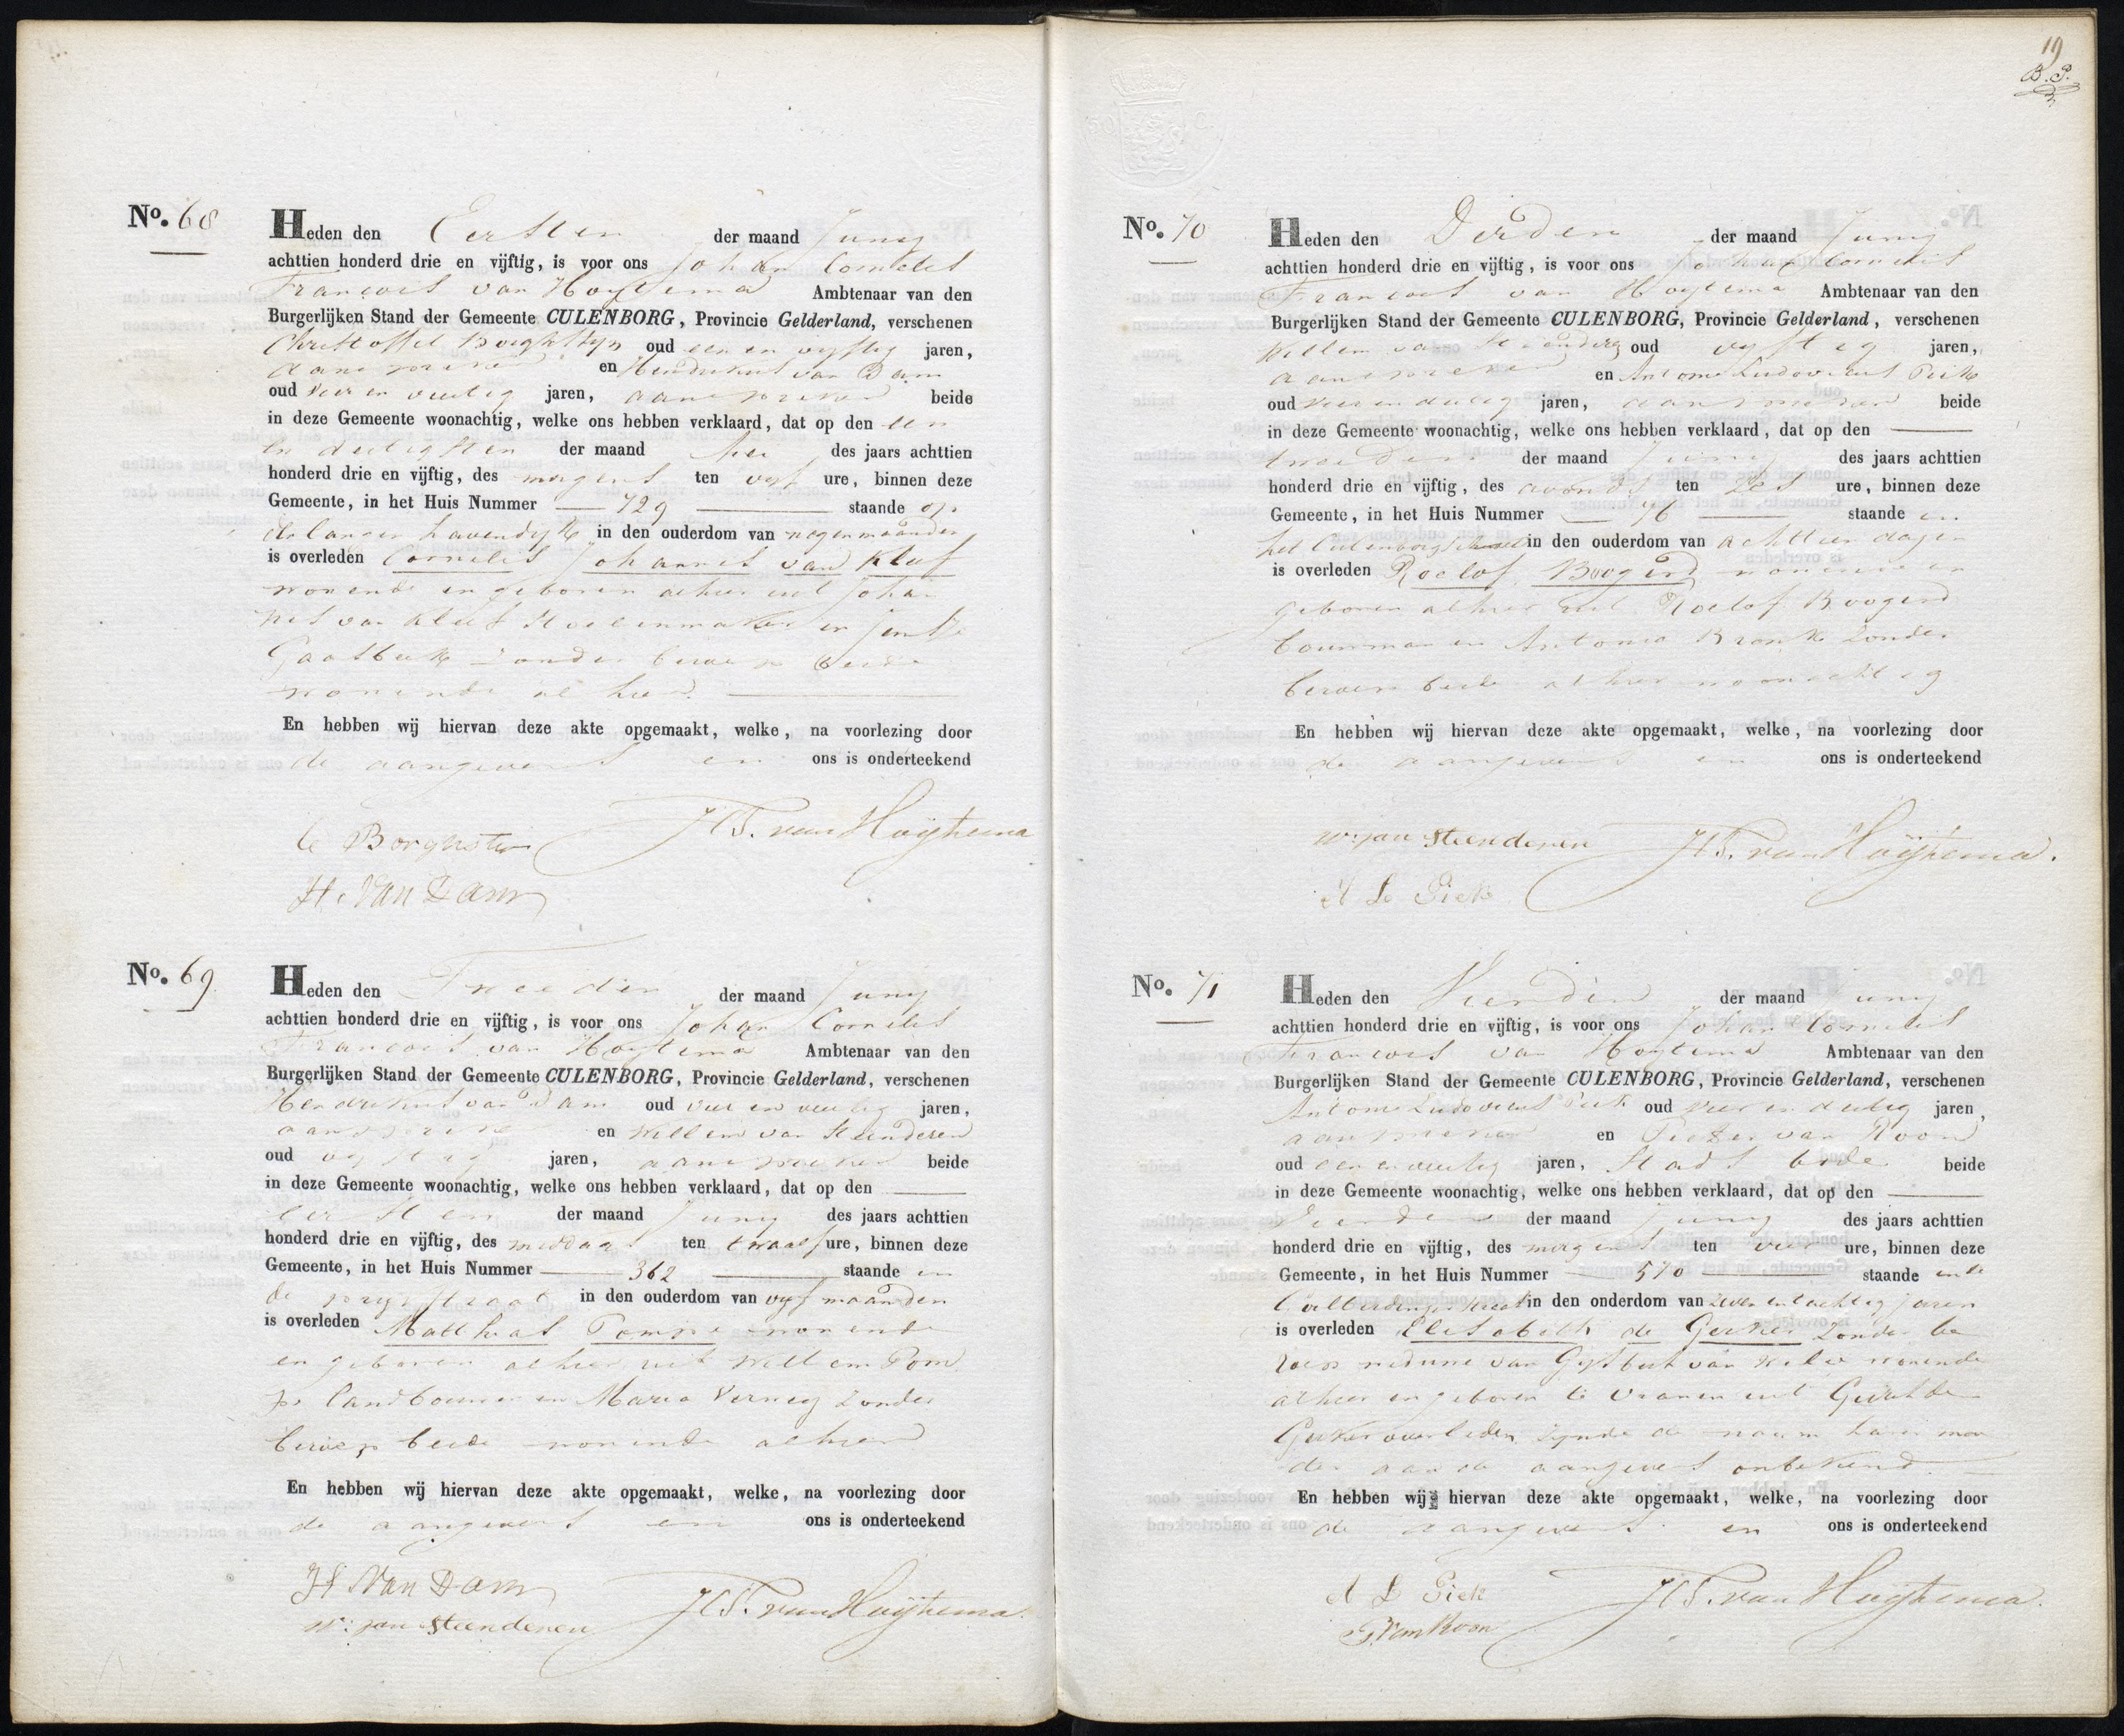 No. 68
Heden den Eersten der maand Juny
achttien honderd drie en vijftig, is voor ons Johan Cornelis
Francois van Hoytema Ambtenaar van den
Burgerlijken Stand der Gemeente CULENBORG, Provincie Gelderland, verschenen
Christoffel Borghstyn oud een en vyftig jaren,
aanspreker en Hendrikus van Dam
oud vier en veertig jaren, aanspreker beide
in deze Gemeente woonachtig, welke ons hebben verklaard, dat op den een
en dertigsten der maand Mei des jaars achttien
honderd drie en vijftig, des morgens ten vyf ure, binnen deze
Gemeente, in het Huis Nummer 729 staande op
de lange havendyk in den ouderdom van negen maanden
is overleden Cornelis Johannes van Kleef
wonende en geboren alhier uit Johan
nes van Kleef Stoelenmaker en
Gaasbeek zonder beroep beide
wonende alhier.
En hebben wij hiervan deze akte opgemaakt, welke, na voorlezing door
de aangevers en ons is onderteekend
C Borghstyn JCF. van Hoytema
H. Van Dam
No. 69
Heden den Tweeden der maand Juny
achttien honderd drie en vijftig, is voor ons Johan Cornelis
Francois van Hoytema Ambtenaar van den
Burgerlijken Stand der Gemeente CULENBORG, Provincie Gelderland, verschenen
Hendrikus van Dam oud vier en veertig jaren,
aanspreker en Willem van Steenderen
oud vyftig jaren, aanspreker beide
in deze Gemeente woonachtig, welke ons hebben verklaard, dat op den
eersten der maand Juny des jaars achttien
honderd drie en vijftig, des middags ten twaalf ure, binnen deze
Gemeente, in het Huis Nummer 362 staande in
de prystraat in den ouderdom van vyf maanden
is overleden Matthias Pompe wonende
en geboren alhier uit Willem Pom
pe landbouwer en Maria Verweij zonder
beroep beide wonende alhier
En hebben wij hiervan deze akte opgemaakt, welke, na voorlezing door
de aangevers en ons is onderteekend
H Van Dam JCF. van Hoytema
W: van Steenderen
19
B.P.
No. 70
Heden den Derden der maand Juny
achttien honderd drie en vijftig, is voor ons Johan Cornelis
Francois van Hoytema Ambtenaar van den
Burgerlijken Stand der Gemeente CULENBORG, Provincie Gelderland, verschenen
Willem van Steenderen oud vyftig jaren,
aanspreker en Antonie Ludovicus Piek
oud vier en dertig jaren, aanspreker beide
in deze Gemeente woonachtig, welke ons hebben verklaard, dat op den
tweeden der maand Juny des jaars achttien
honderd drie en vijftig, des avonds ten zes ure, binnen deze
Gemeente, in het Huis Nummer 76 staande in
het Culenborgsche in den ouderdom van achttien dagen
is overleden Roelof Boogerd wonende en
geboren alhier uit Roelof Boogerd
bouwman en Antonia Bronk zonder
beroep beide alhier woonachtig
En hebben wij hiervan deze akte opgemaakt, welke, na voorlezing door
de aangevers en ons is onderteekend
W: van Steenderen JCF. van Hoytema.
A L Piek
No. 71
Heden den Vierden der maand Juny
achttien honderd drie en vijftig, is voor ons Johan Cornelis
Francois van Hoytema Ambtenaar van den
Burgerlijken Stand der Gemeente CULENBORG, Provincie Gelderland, verschenen
Antonie Ludovicus Piek oud vier en dertig jaren,
aanspreker en Pieter van Roon
oud een en veertig jaren, Stads bode beide
in deze Gemeente woonachtig, welke ons hebben verklaard, dat op den
Vierden der maand Juny des jaars achttien
honderd drie en vijftig, des morgens ten vier ure, binnen deze
Gemeente, in het Huis Nummer 570 staande in de
in den onderdom van zeven en tachtig jaren
is overleden Elisabeth de Gerker zonder be
roep weduwe van Gysbert van wonende
alhier en geboren te Vianen uit de
overleden zynde de naam harer moe
der aan de aangevers onbekend
En hebben wij hiervan deze akte opgemaakt, welke, na voorlezing door
de aangevers en ons is onderteekend
A L Piek JCF. van Hoytema.
P. Van Roon